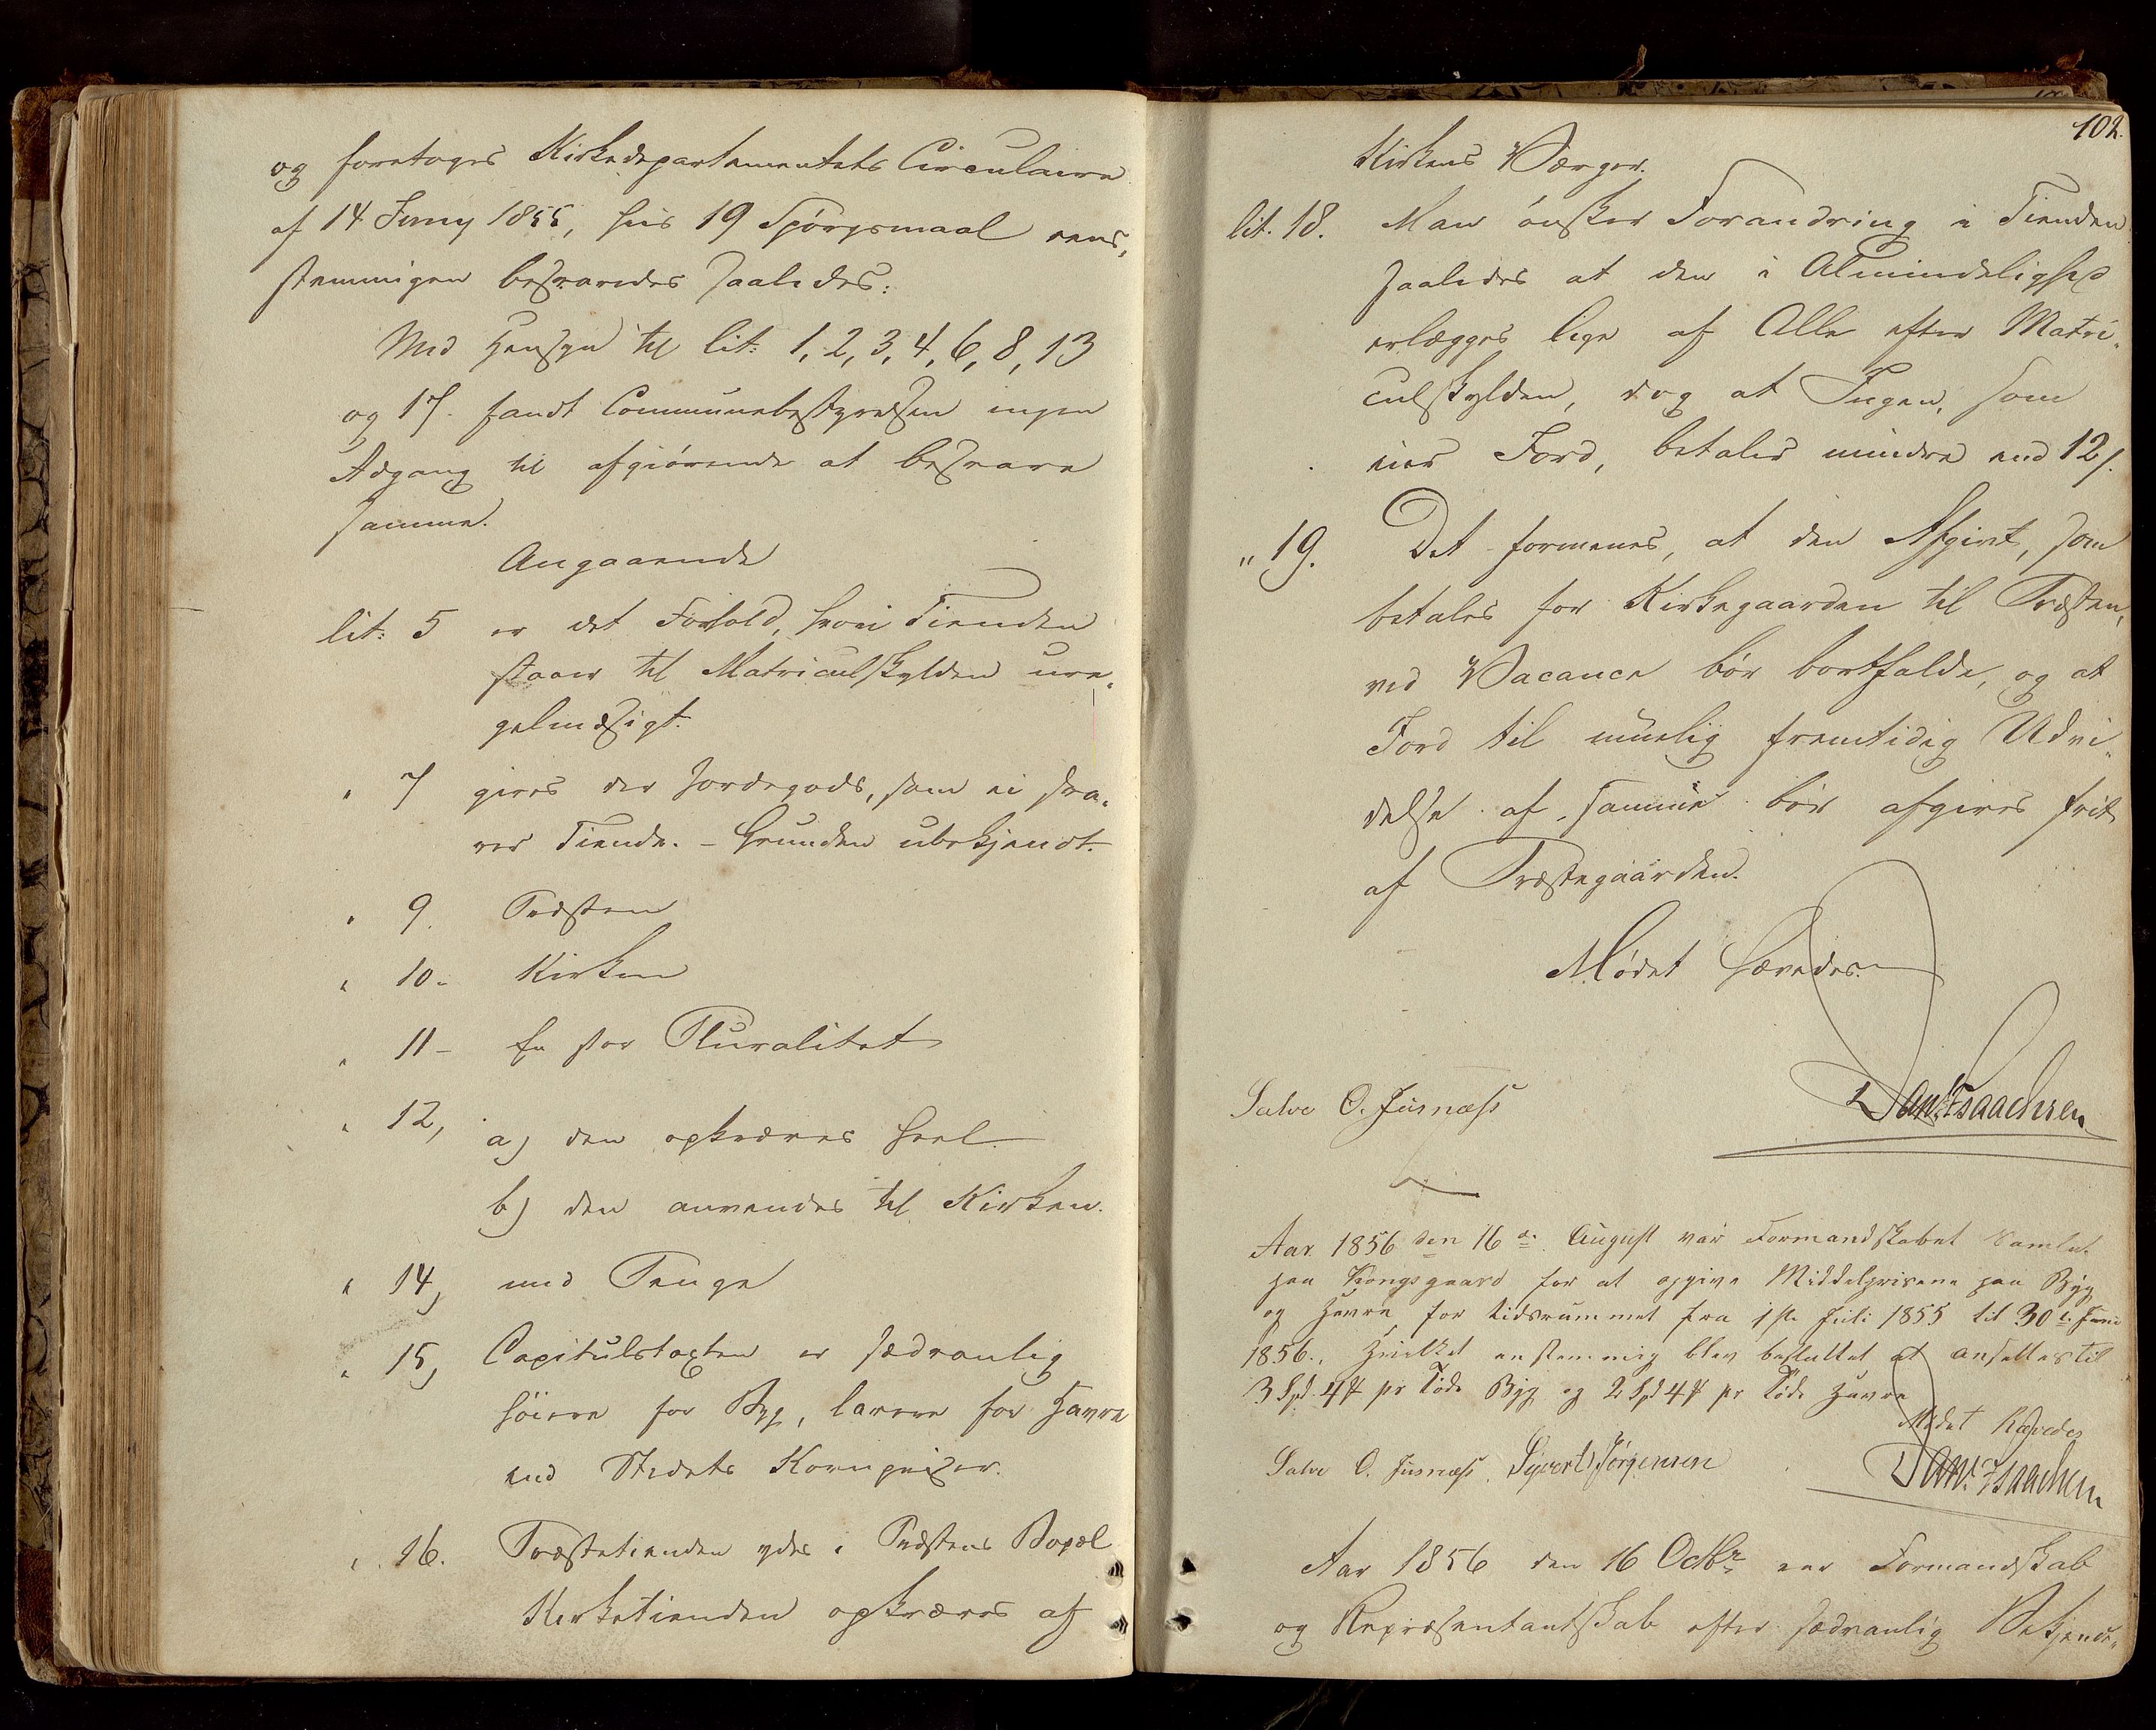 og foretoges Kirkedepartementets Circulaire
af 14 Juny 1855, hvis 19 Spörgsmaal eens,
stemmigen besvaredes saaledes:
Med Hensyn til lit: 1, 2, 3, 4, 6, 8, 13
og 17. fandt Communebestyrelsen ingen
Adgang til afgiörende at besvare
samme.
Angaaende
lit: 5 er det Forhold, hvori Tienden
staaer til Matriculskylden ure„
gelmæsigt.
„ 7 gives der Jordegods, som ei sva„
rer Tiende. – Grunden ubekjendt.
„ 9. Præsten
„ 10. Kirken
„ 11 – En stor Pluralitet
„ 12, a) den opkræves heel
b) den anvendes til Kirken.
„ 14, med Penge
„ 15, Capitulstaxten er sædvanlig
höiere for Byg, lavere for Havre
end Stedets Kornpriser.
„ 16. Præstetienden ydes i Præstens Bopæl
Kirketienden opkræves af
102.
Kirkens Værger.
lit. 18. Man önsker Forandring i Tienden
saaledes at den i Almindelighed
erlægges lige af Alle efter Matri„
culskylden, dog at Ingen, som
eier Jord, betaler mindre end 12 s.
„ 19. Det formenes, at den Afgivt, som
betales for Kirkegaarden til Præsten,
ved Vacance bör bortfalde, og at
Jord til muelig fremtidig Udvi„
delse af samme bör afgives frit
af Præstegaarden.
Mödet hævedes.
Salve O. Jusnæss
Dan. Isaachsen
Aar 1856 den 16de August var Formandskabet samlet
paa Kongsgaard for at opgive Middelprisene paa Byg
og Havre for tidsrummet fra 1ste Juli 1855 til 30te Juni
1856., Hvilket enstemmig blev besluttet at ansættes til
3 Spd. 4 # pr Töde Byg og 2 Spd 4 # pr Töde Havre
Mödet hævedes
Salve O. Jusnæss. Syvert Jörgensen
Dan. Isaachsen
Aar 1856 den 16 Octbr var Formandskab
og Repræsentantskab efter sædvanlig Bekjendt„